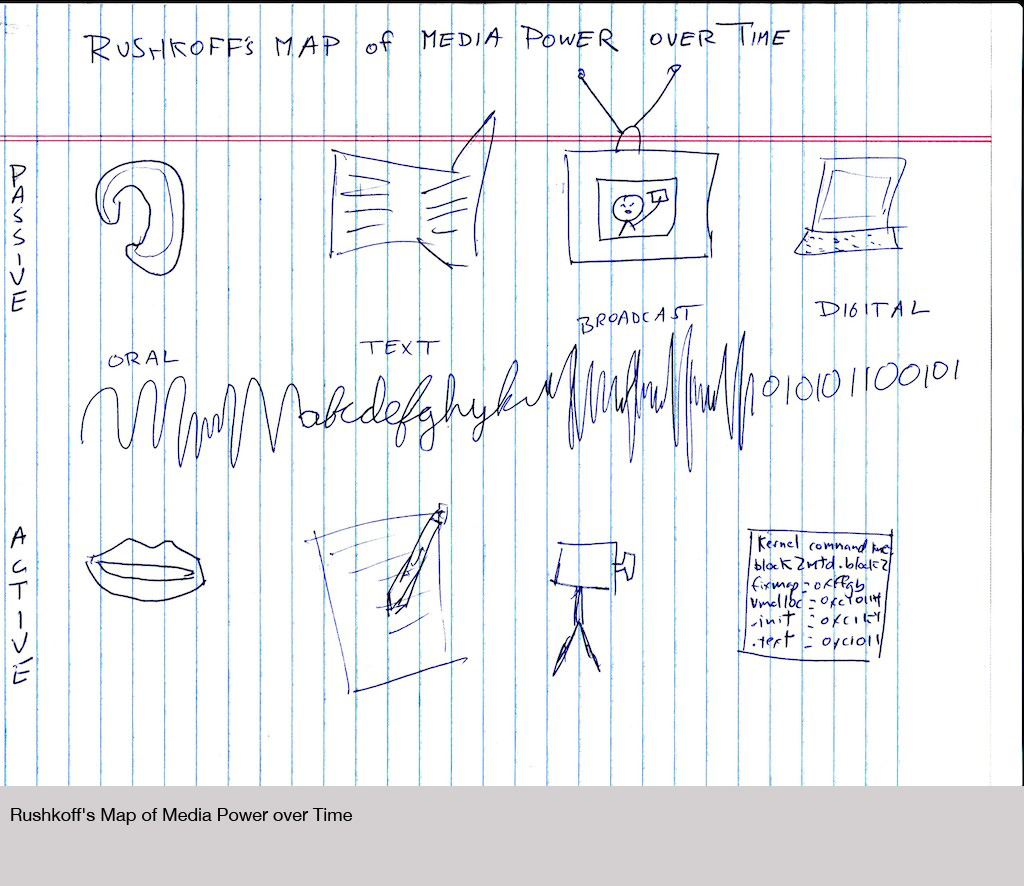 RUSHKOFF's MAP of MEDIA POWER OVER TIME
PASSIVE
ORAL
TEXT
BROADCAST
DIGITAL
abcdefghyk
010101100101
ACTIVE
Kernel command
block2mtd.block2
fixmap = oxffgb
vmalloc = oxc10114
.init = oxc1
.text = oxc1011
Rushkoff's Map of Media Power over Time